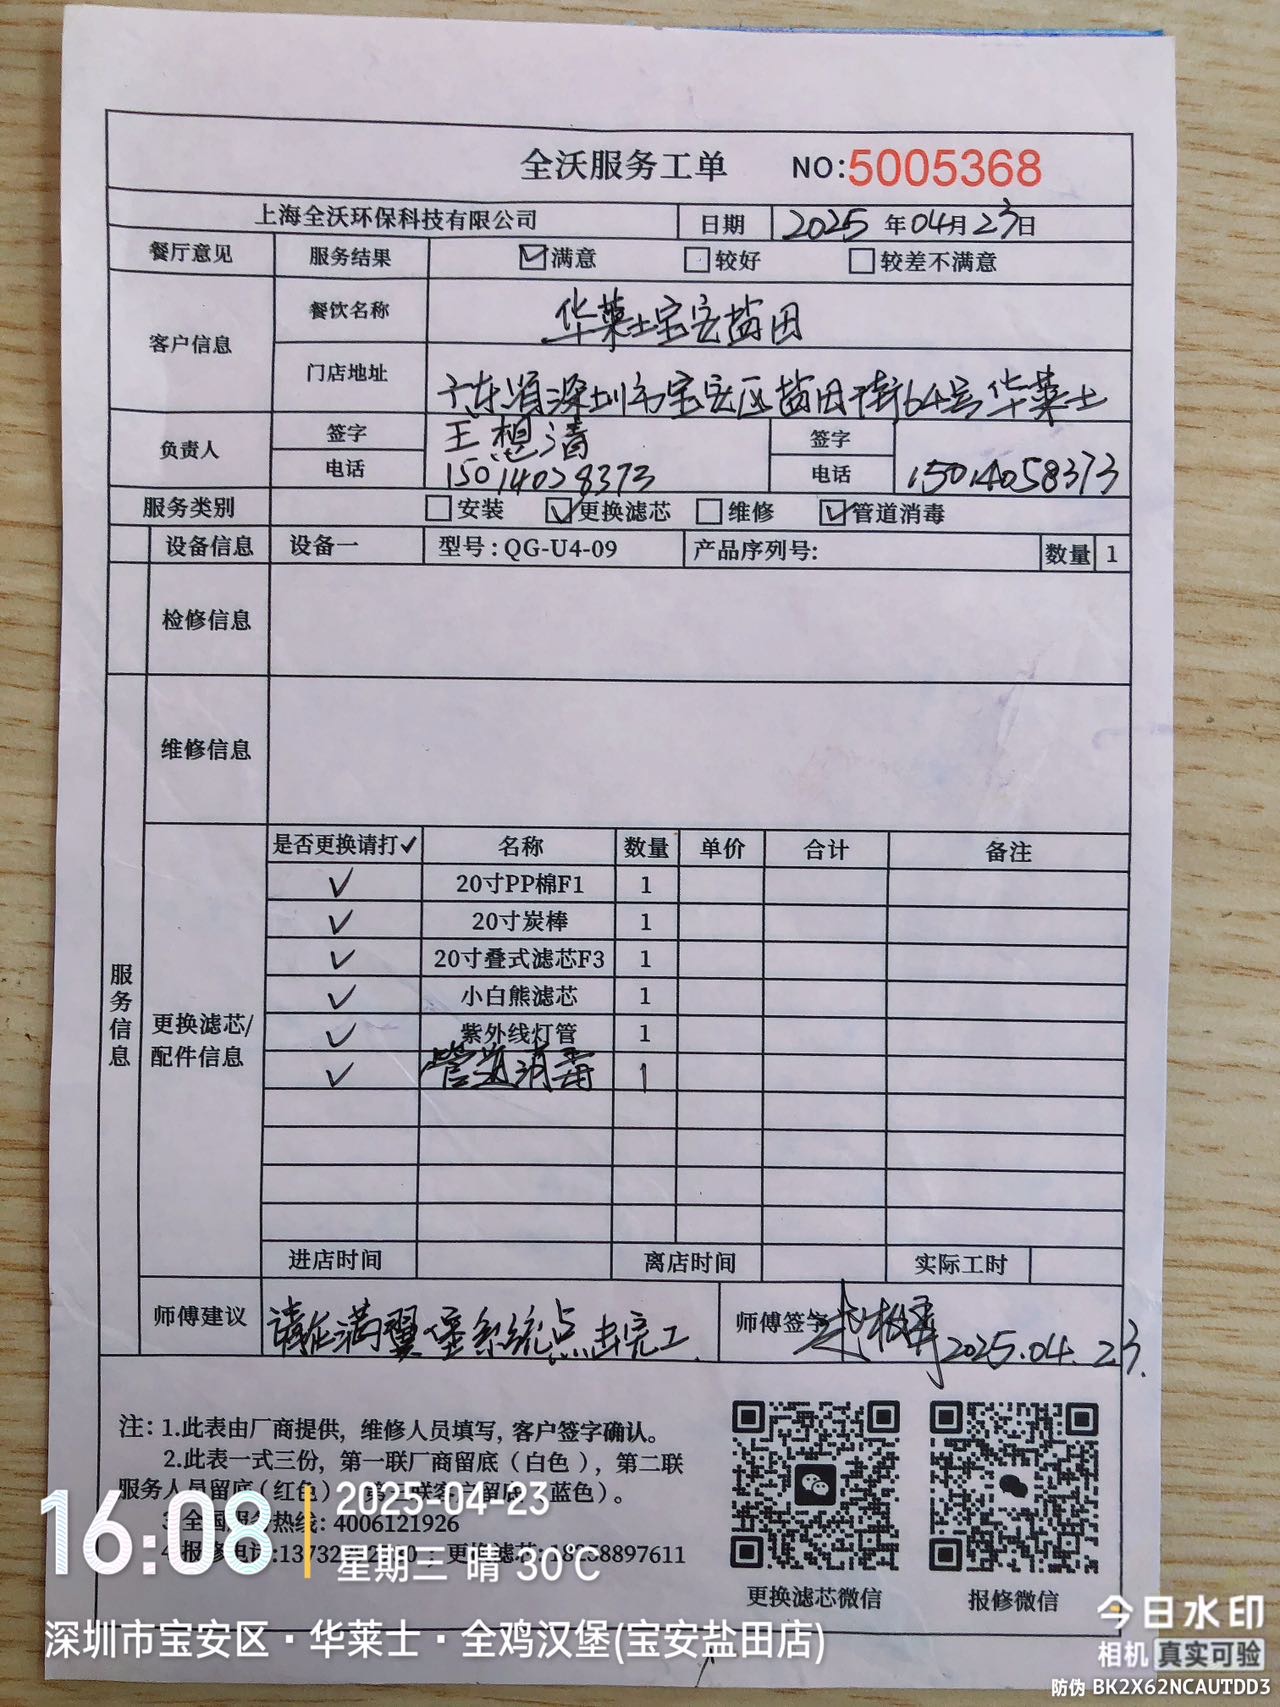 全沃服务工单 NO:5005368
上海全沃环保科技有限公司 日期 2025 年 04月 23日
餐厅意见 服务结果 满意 较好 较差不满意
客户信息 餐饮名称 华莱士宝安盐田
门店地址 广东省深圳市宝安区盐田街64号华莱士
负责人 签字 王想清 签字
电话 15014058373 电话 15014058373
服务类别 安装 更换滤芯 维修 管道消毒
设备信息 设备一 型号:QG-U4-09 产品序列号: 数量 1
检修信息
维修信息
服务信息
更换滤芯/配件信息
是否更换请打✓ 名称 数量 单价 合计 备注
✓ 20寸PP棉F1 1
✓ 20寸炭棒 1
✓ 20寸叠式滤芯F3 1
✓ 小白熊滤芯 1
✓ 紫外线灯管 1
✓ 管道消毒 1
进店时间 离店时间 实际工时
师傅建议 请在满翼堡系统点击完工 师傅签字 2025.04.23.
注: 1.此表由厂商提供, 维修人员填写, 客户签字确认。
2.此表一式三份, 第一联厂商留底(白色), 第二联
服务人员留底(红色) 联客户留底 蓝色)。
全国服务热线: 4006121926
报修电话:13732 更换滤芯: 8897611
更换滤芯微信 报修微信
16:08 2025-04-23
星期三 晴 30℃
深圳市宝安区·华莱士·全鸡汉堡(宝安盐田店)
今日水印
相机 真实可验
防伪 BK2X62NCAUTDD3